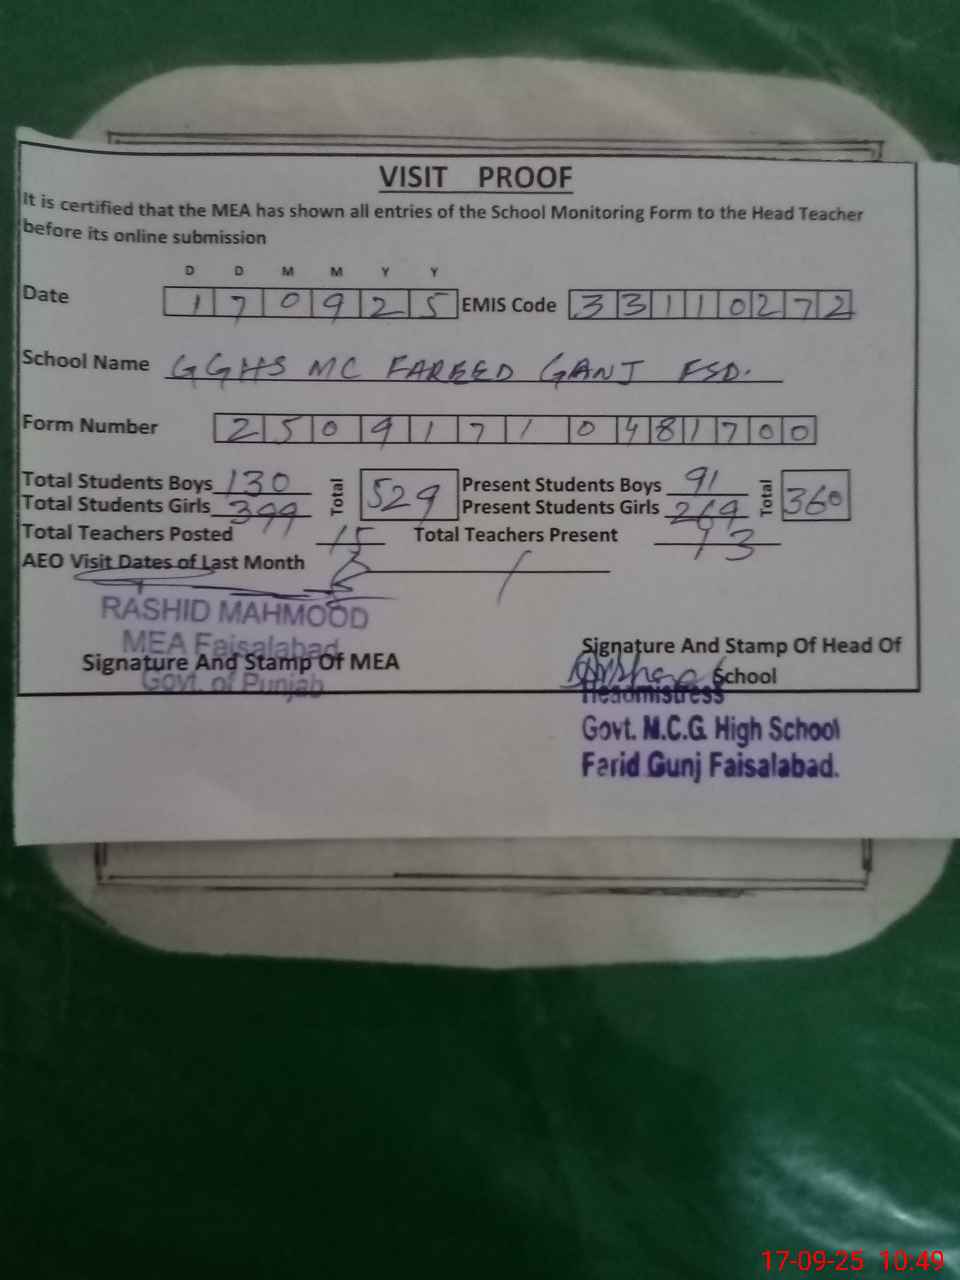 VISIT PROOF
It is certified that the MEA has shown all entries of the School Monitoring Form to the Head Teacher
before its online submission
D D M M Y Y
Date 1 7 0 9 2 5 EMIS Code 3 3 1 1 0 2 7 2
School Name GGHS MC FAREED GANJ FSD.
Form Number 2 5 0 9 1 7 1 0 4 8 1 7 0 0
Total Students Boys 130 Total 529 Present Students Boys 91 Total 360
Total Students Girls 399 Present Students Girls 269
Total Teachers Posted 15 Total Teachers Present 13
AEO Visit Dates of Last Month
RASHID MAHMOOD
MEA Faisalabad
Signature And Stamp Of MEA
Govt. of Punjab
Signature And Stamp Of Head Of
School
Headmistress
Govt. M.C.G. High School
Farid Gunj Faisalabad.
17-09-25 10:49